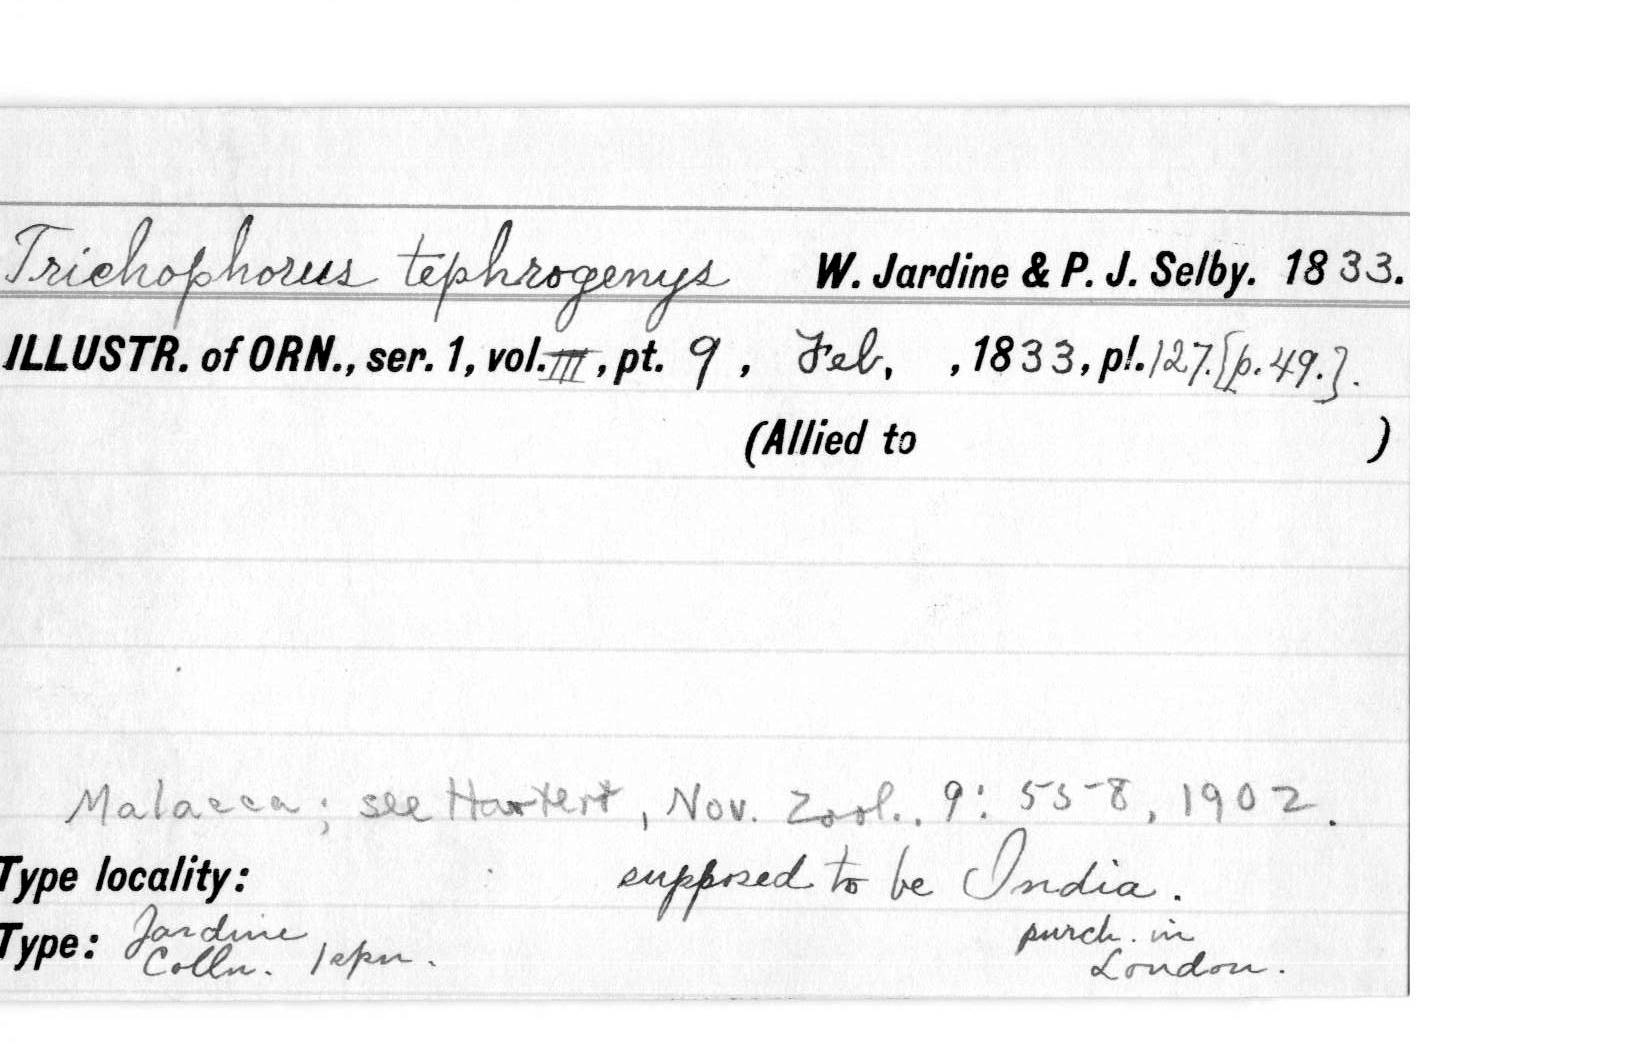 Trichophorus tephrogenys W. Jardine & P. J. Selby. 1833.
ILLUSTR. of ORN., ser. 1, vol. III, pt. 9, Feb, , 1833, pl. 127. [p. 49.].
(Allied to )
Malacca; see Hartert, Nov. Zool., 9: 558, 1902.
Type locality: supposed to be India.
Type: Jardine Colln. 1 spn. purch. in London.